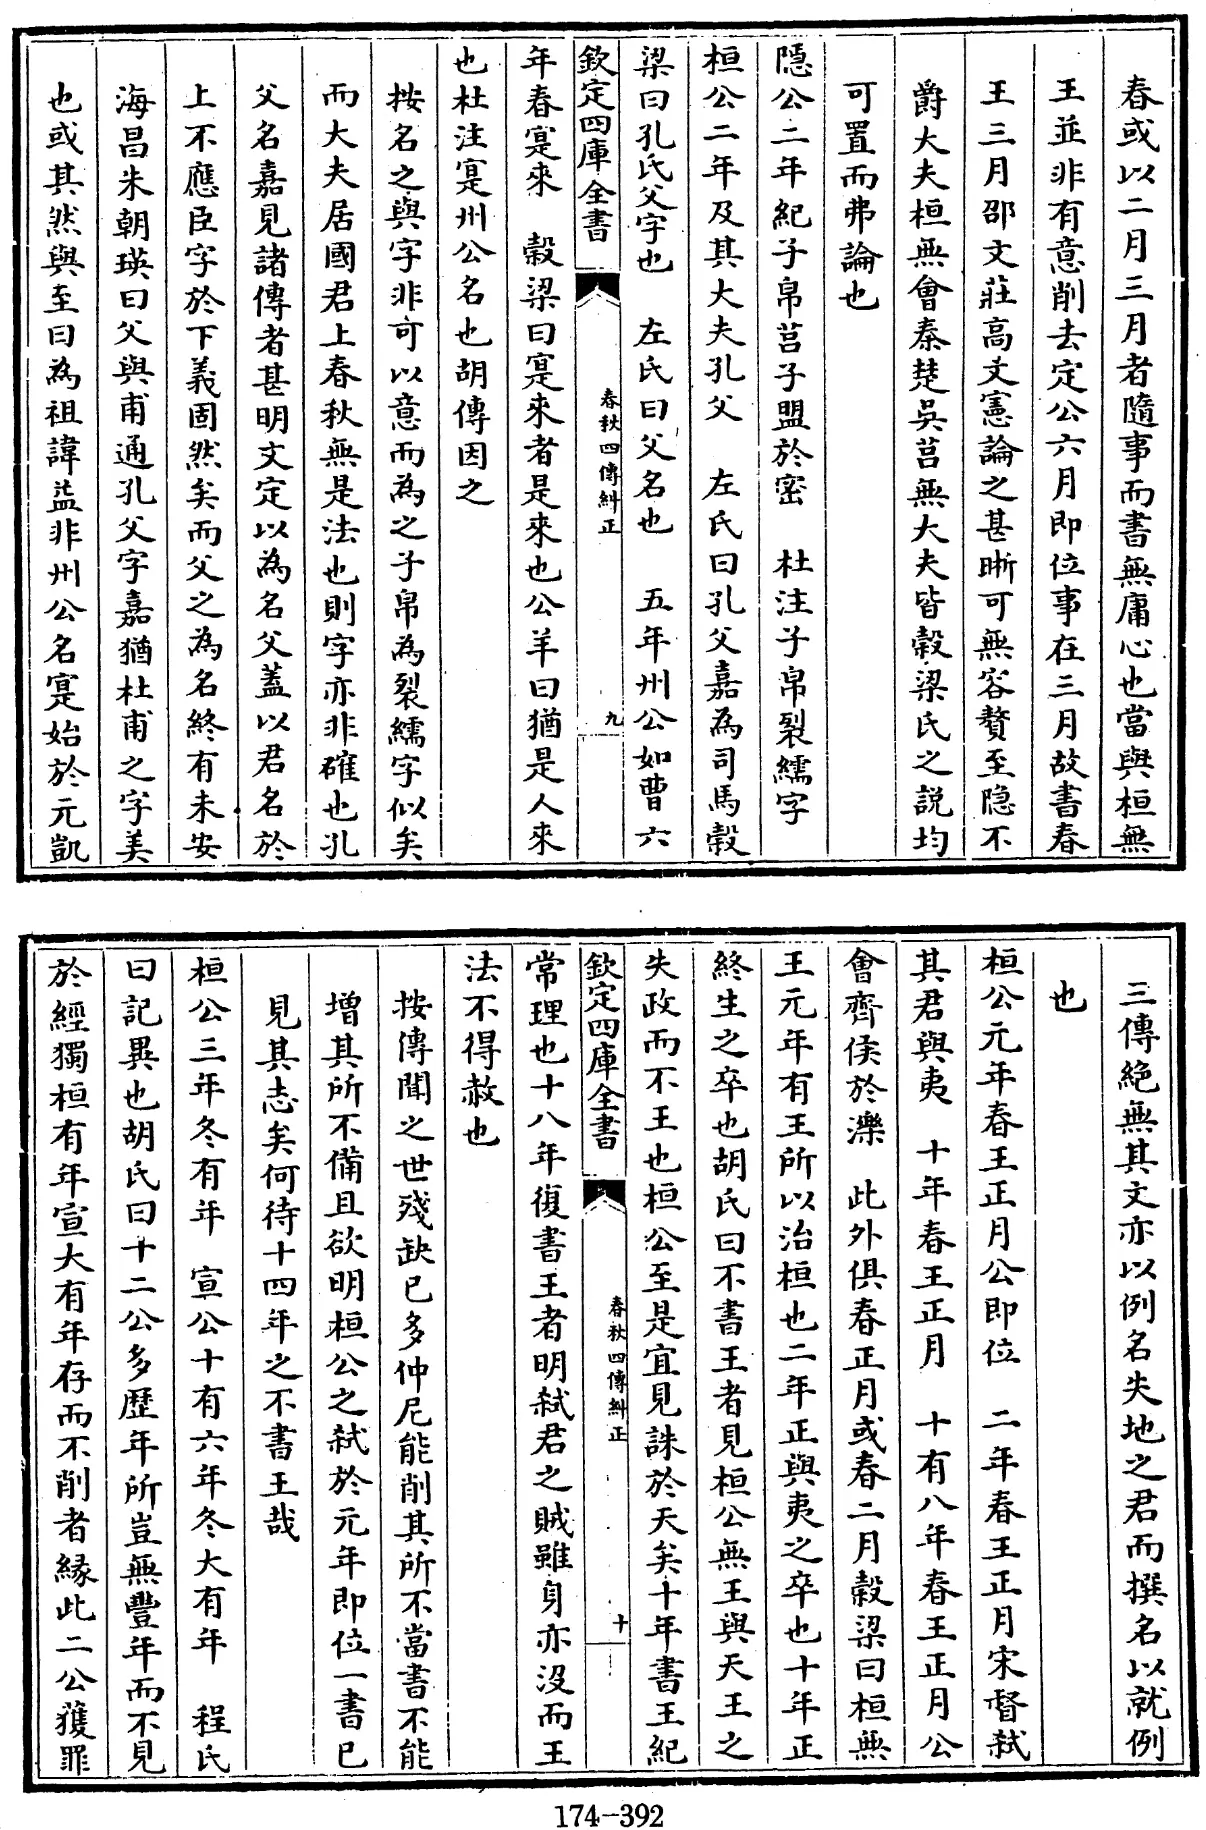 春或以二月三月者隨事而書無庸心也當與桓無
王並非有意削去定公六月即位事在三月故書春
王三月邵文莊高文憲論之甚晰可無容贅至隱不
爵大夫桓無會秦楚吳莒無大夫皆穀梁氏之説均
可置而弗論也
隱公二年紀子帛莒子盟於密　杜注子帛裂繻字
桓公二年及其大夫孔父　左氏曰孔父嘉為司馬穀
梁曰孔氏父字也　左氏曰父名也　五年州公如曹六
欽定四庫全書
春秋四傳糾正
九
年春寔來　穀梁曰寔來者是來也公羊曰猶是人來
也杜注寔州公名也胡傳因之
按名之與字非可以意而為之子帛為裂繻字似矣
而大夫居國君上春秋無是法也則字亦非確也孔
父名嘉見諸傳者甚明文定以為名父蓋以君名於
上不應臣字於下義固然矣而父之為名終有未安
海昌朱朝瑛曰父與甫通孔父字嘉猶杜甫之字美
也或其然與至曰為祖諱益非州公名寔始於元凱
三傳絶無其文亦以例名失地之君而撰名以就例
也
桓公元年春王正月公即位　二年春王正月宋督弑
其君與夷　十年春王正月　十有八年春王正月公
會齊侯於濼　此外俱春正月或春二月穀梁曰桓無
王元年有王所以治桓也二年正與夷之卒也十年正
終生之卒也胡氏曰不書王者見桓公無王與天王之
失政而不王也桓公至是宜見誅於天矣十年書王紀
欽定四庫全書
春秋四傳糾正
十
常理也十八年復書王者明弑君之賊雖身亦沒而王
法不得赦也
按傳聞之世殘缺已多仲尼能削其所不當書不能
增其所不備且欲明桓公之弑於元年即位一書已
見其志矣何待十四年之不書王哉
桓公三年冬有年　宣公十有六年冬大有年　程氏
曰記異也胡氏曰十二公多歴年所豈無豐年而不見
於經獨桓有年宣大有年存而不削者緣此二公獲罪
174-392